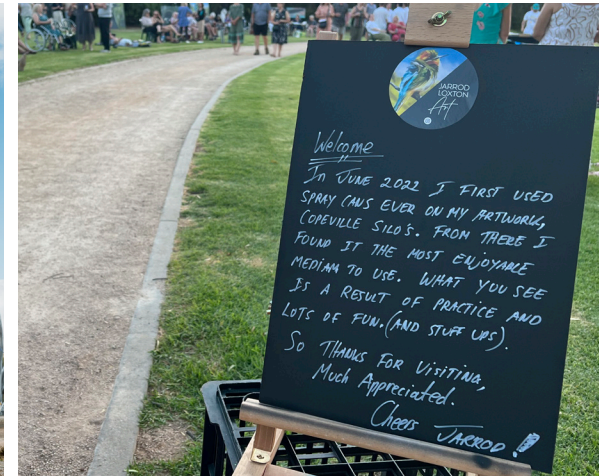 JARROD
LOXTON
Art
Welcome
In JUNE 2022 I FIRST USED
SPRAY CANS EVER ON MY ARTWORK,
COPEVILLE SILO'S. FROM THERE I
FOUND IT THE MOST ENJOYABLE
MEDIAM TO USE. WHAT YOU SEE
IS A RESULT OF PRACTICE AND
LOTS OF FUN. (AND STUFF UPS).
SO THANKS FOR VISITING,
Much Appreciated.
Cheers JARROD!